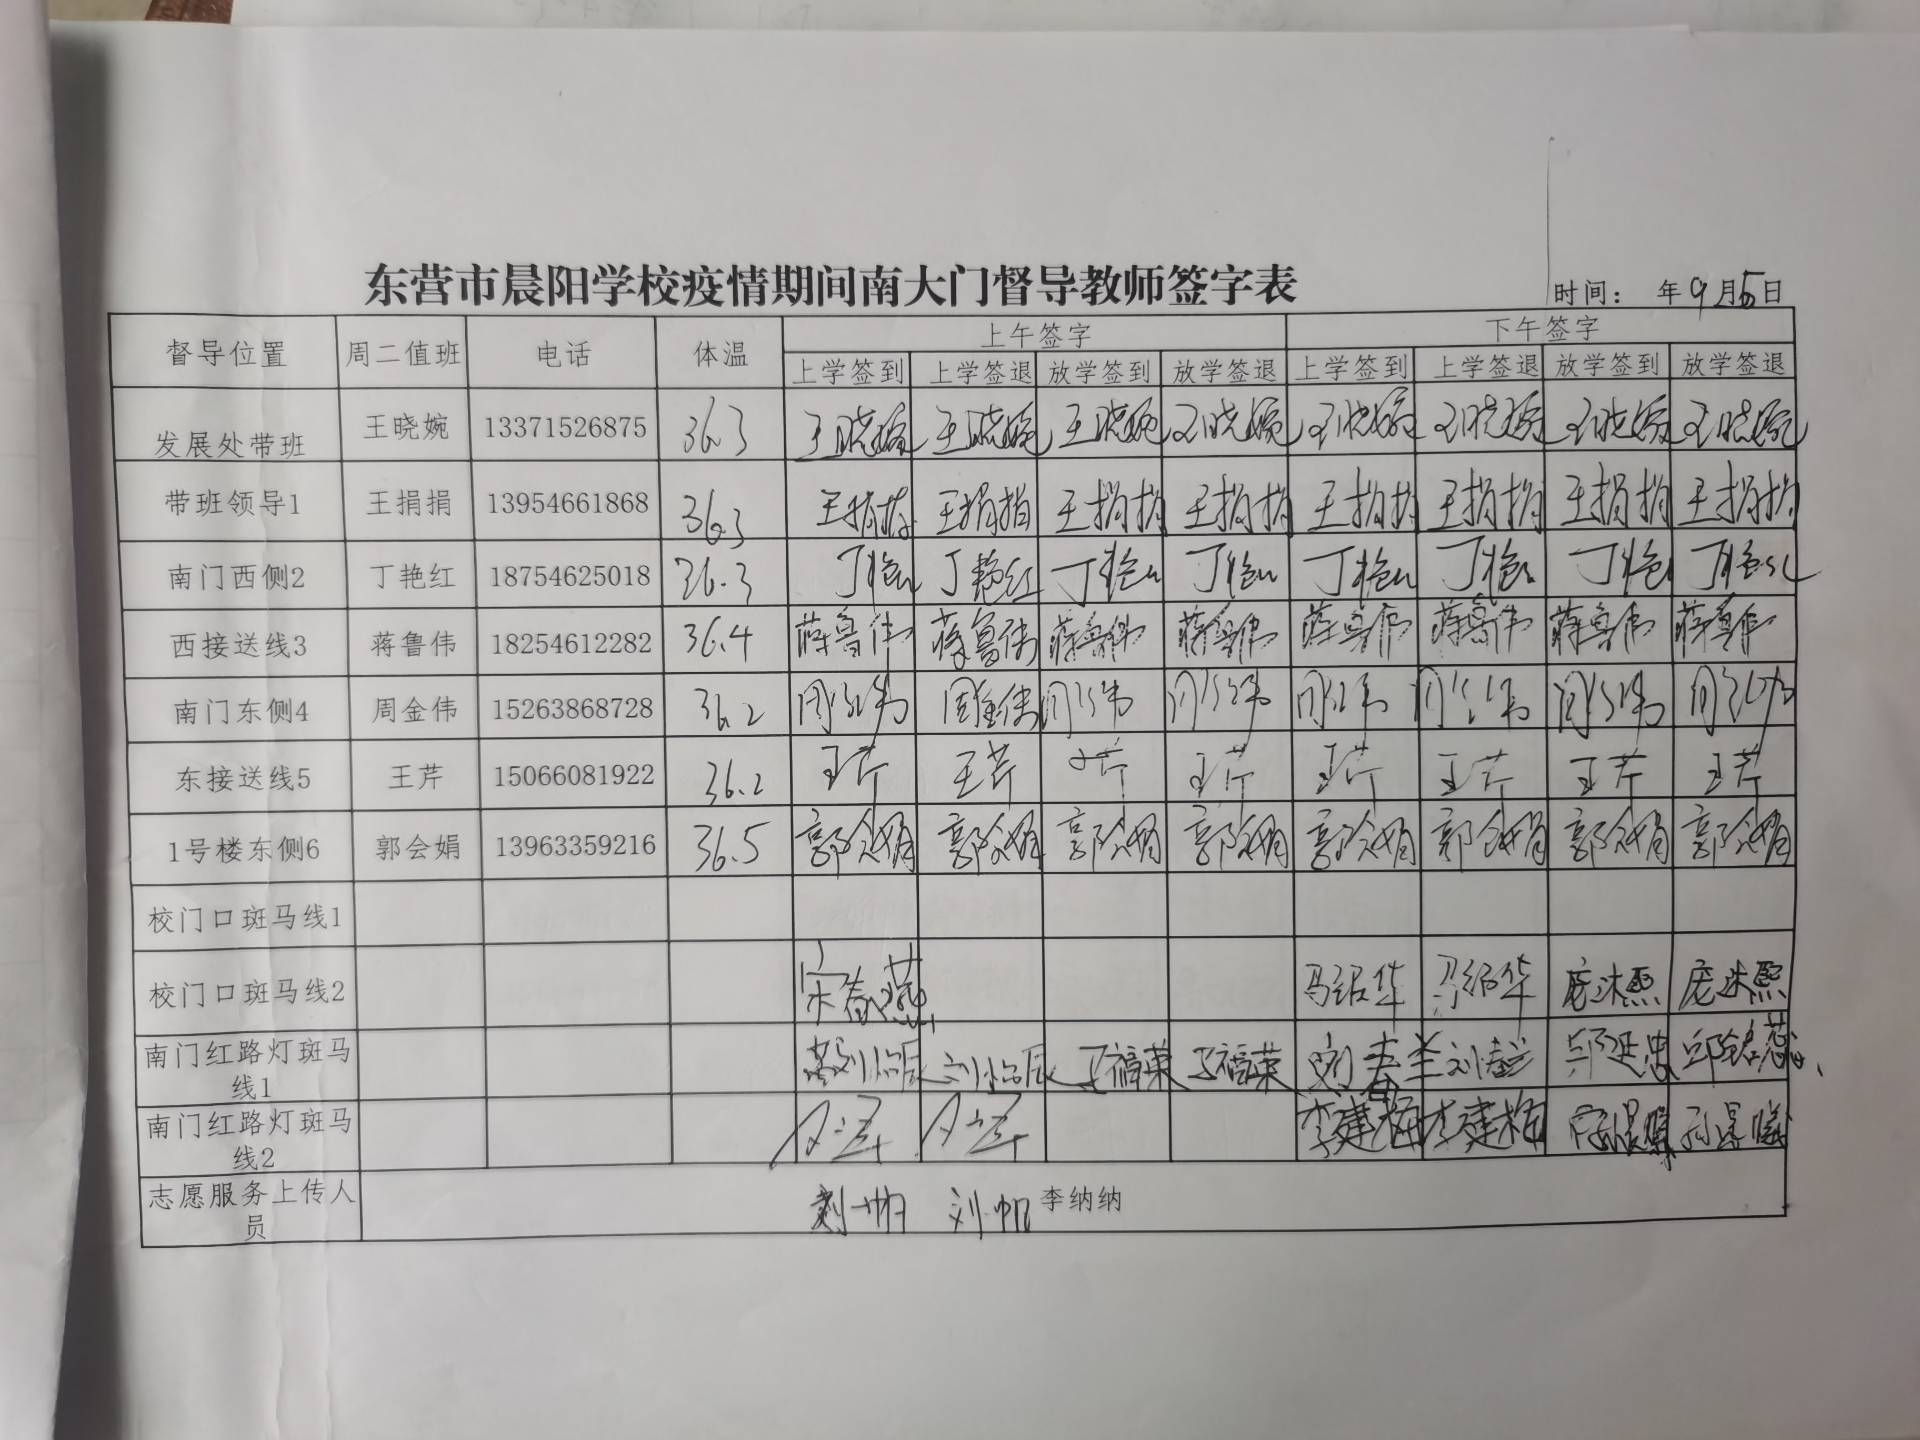 东营市晨阳学校疫情期间南大门督导教师签字表
时间： 年9月5日
督导位置 周二值班 电话 体温 上午签字 下午签字
上学签到 上学签退 放学签到 放学签退 上学签到 上学签退 放学签到 放学签退
发展处带班 王晓婉 13371526875 36.3 王晓婉 王晓婉 王晓婉 王晓婉 王晓婉 王晓婉 王晓婉 王晓婉
带班领导1 王捐捐 13954661868 36.3 王捐捐 王捐捐 王捐捐 王捐捐 王捐捐 王捐捐 王捐捐 王捐捐
南门西侧2 丁艳红 18754625018 36.3 丁艳红 丁艳红 丁艳红 丁艳红 丁艳红 丁艳红 丁艳红 丁艳红
西接送线3 蒋鲁伟 18254612282 36.4 蒋鲁伟 蒋鲁伟 蒋鲁伟 蒋鲁伟 蒋鲁伟 蒋鲁伟 蒋鲁伟 蒋鲁伟
南门东侧4 周金伟 15263868728 36.2 周金伟 周金伟 周金伟 周金伟 周金伟 周金伟 周金伟 周金伟
东接送线5 王芹 15066081922 36.2 王芹 王芹 王芹 王芹 王芹 王芹 王芹 王芹
1号楼东侧6 郭会娟 13963359216 36.5 郭会娟 郭会娟 郭会娟 郭会娟 郭会娟 郭会娟 郭会娟 郭会娟
校门口斑马线1
校门口斑马线2 宋春燕 马绍华 马绍华 庞沐熙 庞沐熙
南门红路灯斑马
线1 丁福荣 丁福荣 刘春兰 刘春兰
南门红路灯斑马
线2 李建梅 李建梅
志愿服务上传人
员 刘帅 刘帆 李纳纳